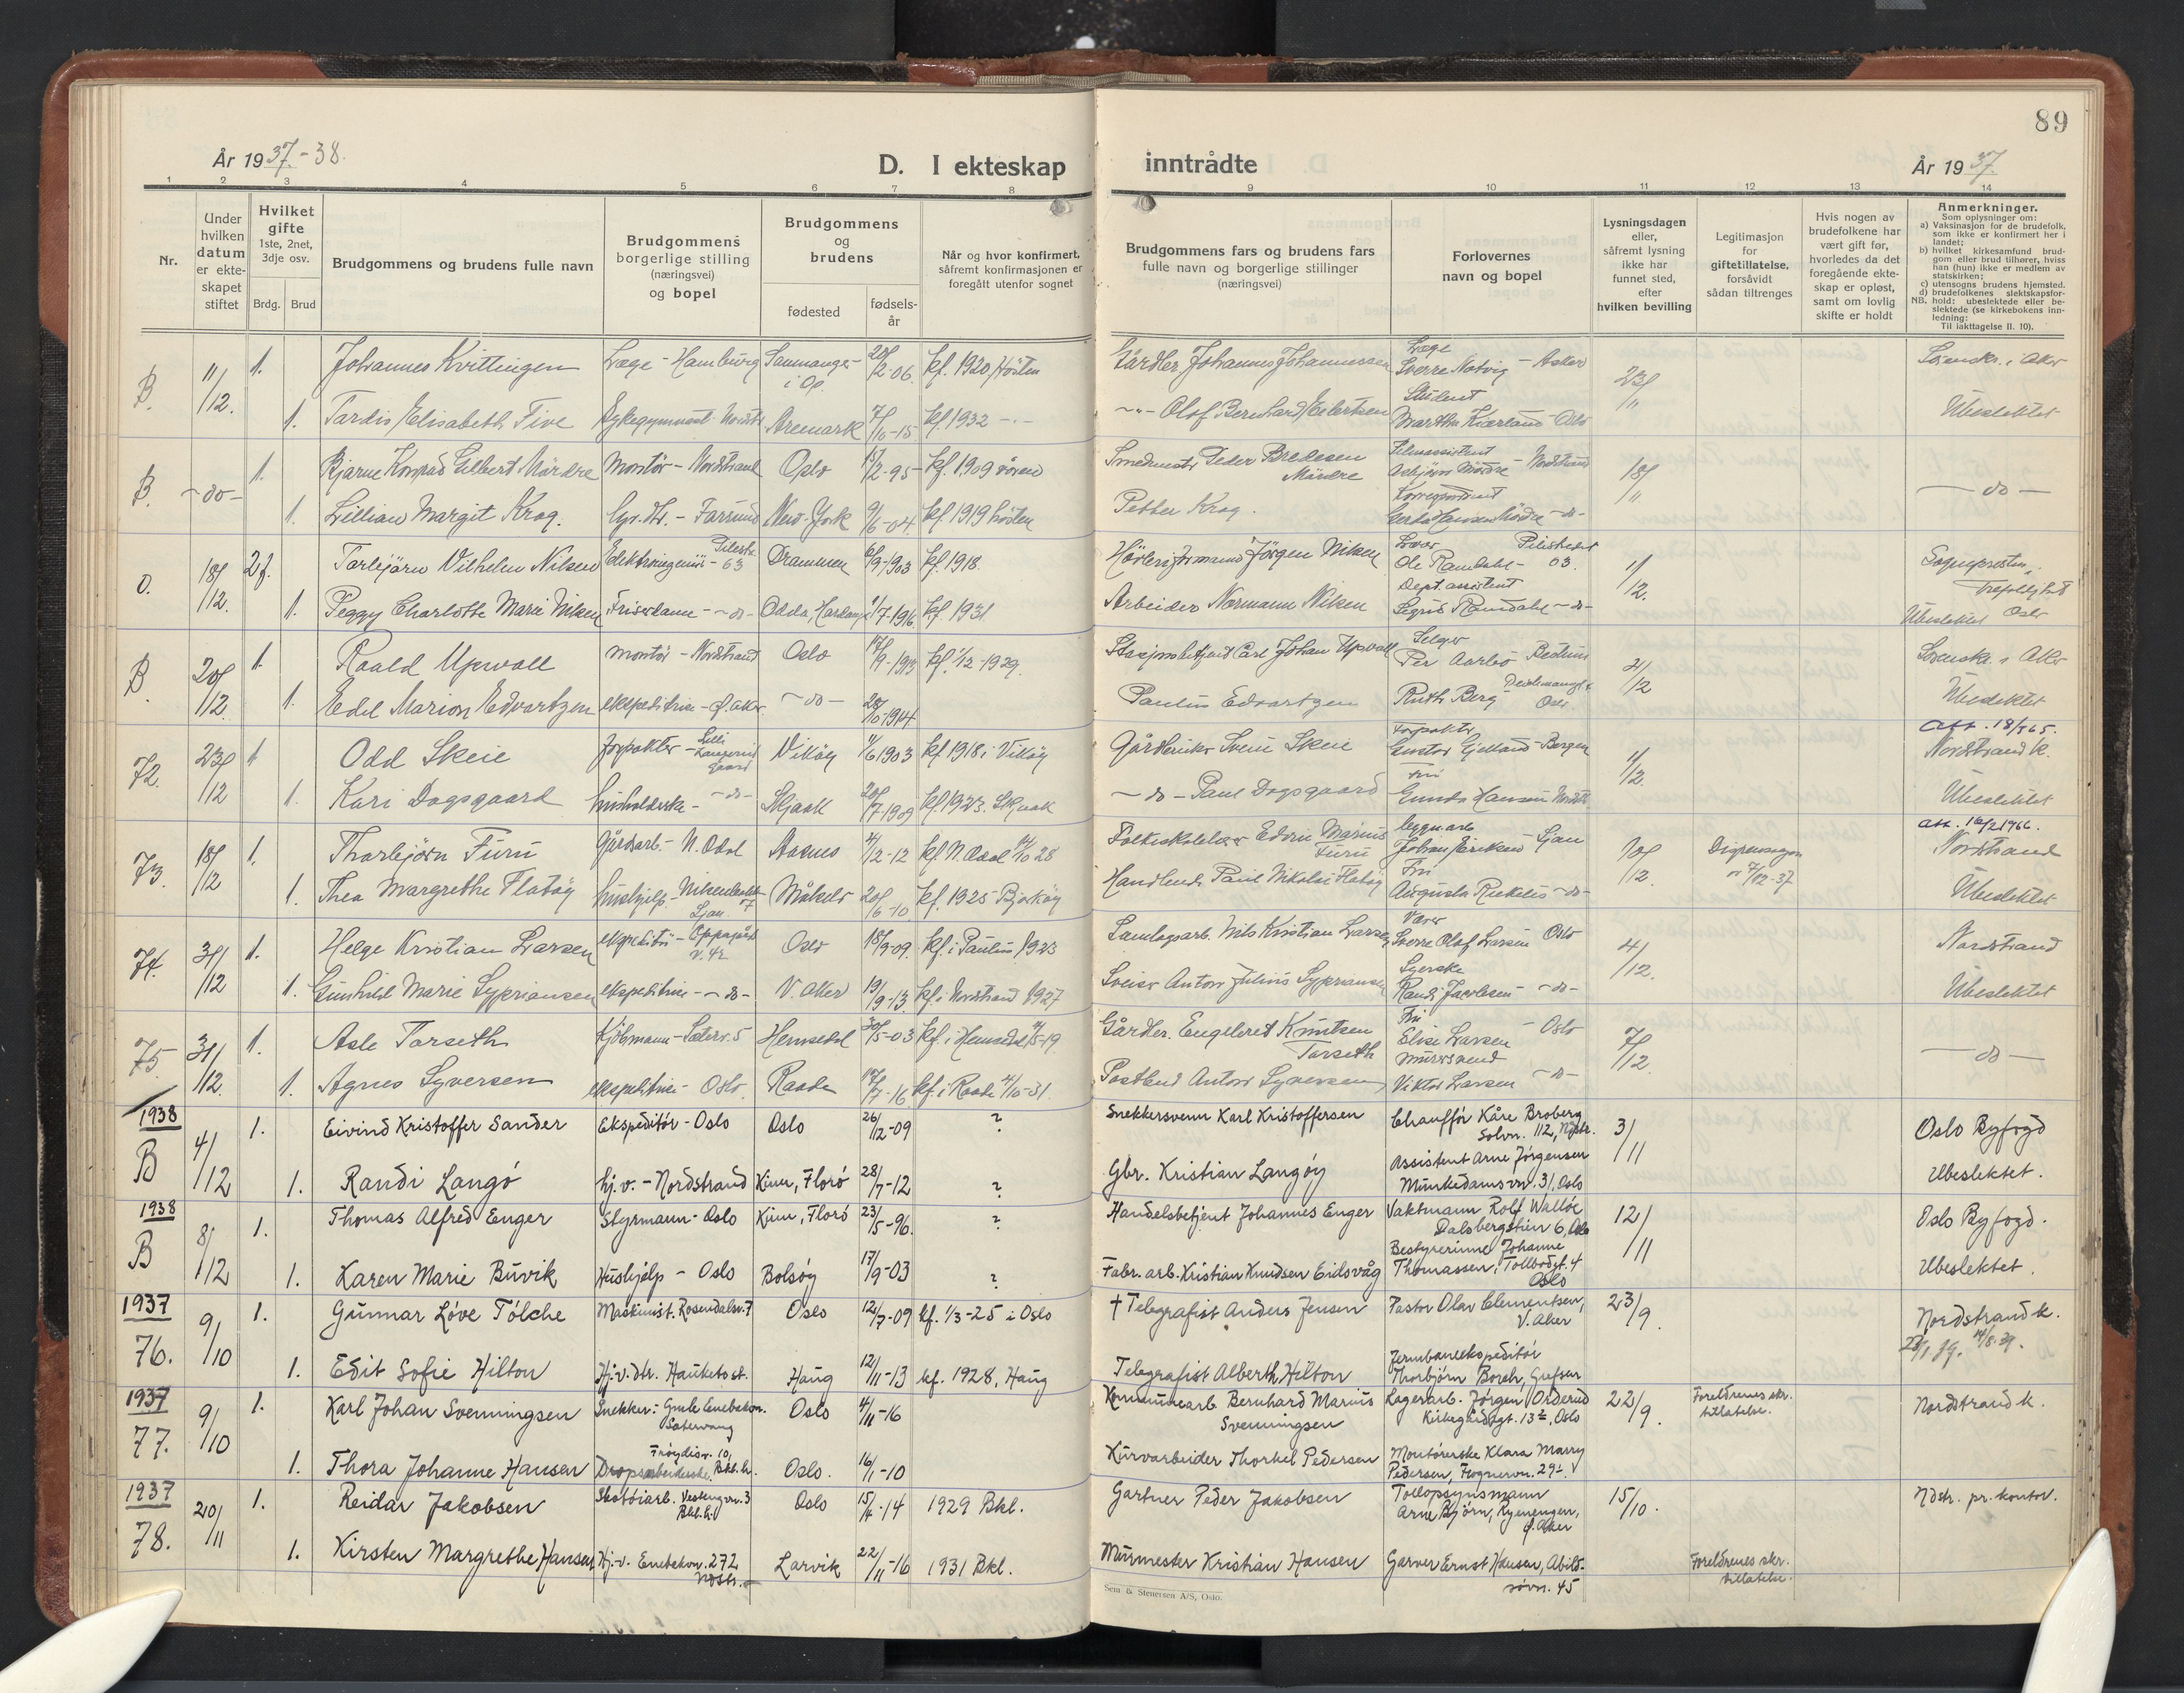 89
År 1937-38.
D. I ekteskap
inntrådte
År 1937.
1 2 3 4 5 6 7 8 9 10 11 12 13 14
Nr.
Under hvilken datum er ekteskapet stiftet
Hvilket gifte
1ste, 2net, 3dje osv.
Brdg. Brud
Brudgommens og brudens fulle navn
Brudgommens borgerlige stilling (næringsvei) og bopel
Brudgommens og brudens
fødested
fødselsår
Når og hvor konfirmert,
såfremt konfirmasjonen er
foregått utenfor sognet
Brudgommens fars og brudens fars
fulle navn og borgerlige stillinger
(næringsvei)
Forlovernes
navn og bopel
Lysningsdagen
eller,
såfremt lysning
ikke har
funnet sted,
efter
hvilken bevilling
Legitimasjon
for
giftetillatelse,
forsåvidt
sådan tiltrenges
Hvis nogen av
brudefolkene har
vært gift før,
hvorledes da det
foregående ekte-
skap er opløst,
samt om lovlig
skifte er holdt
Anmerkninger.
Som oplysninger om:
a) Vaksinasjon for de brudefolk,
som ikke er konfirmert her i
landet;
b) hvilket kirkesamfund brud-
gom eller brud tilhører, hviss
han (hun) ikke er medlem av
statskirken;
c) utensogns brudens hjemsted.
d) brudefolkenes slektskapsfor-
NB. hold: ubeslektede eller be-
slektede (se kirkebokens inn-
ledning:
Til iakttagelse II. 10).
B. 11/12. 1. Johannes Kvittingen Læge - Hamburg Samnanger i Op. 20/2-06. kf. 1920 Hösten Gårdbr. Johannes Johannessen Læge Sverre Natvig - Asker 23/11 Sorenskr. i Aker
1. Tardis Elisabeth Five Sykegymnast Nordstr. Aremark 7/10-15 kf. 1932 -"- -"- Olaf Bernhard Eilertsen Student Martha Kierland Oslo Ubeslektet
B. -do- 1. Bjarne Konrad Gilbert Mördre Montör - Nordstrand Oslo 15/2-95 kf. 1909 våren Smedmester Peder Bredesen Mördre Filmassistent Asbjörn Mördre - Nordstrand 18/11 - do -
1. Lillian Margit Krog. - Farsund New-York 9/6-04 kf 1919 hösten Petter Krog. Korrespondent Gerda Hansen Mördre -do-
O. 18/12. 2g. Torbjörn Vilhelm Nilsen Elektroingeniör - Pilestr. 63 Drammen 6/9-1903 kf. 1918. Jörgen Nilsen Ole Ramdahl - Pilestredet 63. 1/12. Sognepresten, Trefoldighet Oslo
1. Peggy Charlotte Marie Nilsen Friserdame - -do- Odda, Hardanger 1/7-1916. kf. 1931 Arbeider Normann Nilsen Dept. assistent Sigrid Ramdahl -do- Ubeslektet
B. 20/12. 1. Roald Upwall montör - Nordstrand Oslo 17/9-1913 kf. 1/12-1929. Stasjonsbetjent Carl Johan Upwall Selger Per Aarbo Bestum 2/12 Sorenskr. i Aker
1. Edel Marion Edvartzen ekspeditrise - Ø. Aker. -do- 28/10-1914 Paulus Edvartzen Ruth Berg Deichmansgt. Oslo Ubeslektet
72. 23/12 1 Odd Skeie forpakter - Lilli Langerud gaard Viköy 4/6 1903 kf 1918 i Viköy Gårdbruker Svein Skeie Forpakter Gustav Gjelland - Bergen 11/12. Att. 18/5 65. Nordstrand k.
1. Kari Dagsgaard husholderske - -do- Skjaak 20/7-1909 kf 1923. Skjaak -do- Paul Dagsgaard Fru Gunda Hansen Nordstr. Ubeslektet
73. 18/12 1. Thorbjörn Furu Gårdsarb. - N. Odal Aasnes 4/12-12 kf N. Odal 14/10 28 Folkeskolelærer Edvin Marius Furu bygn. arb. Johan Eriksen - Ljan 10/12. Dispensasjon av 7/12-37 Att. 16/2 1966. Nordstrand
1. Thea Margrethe Flatöy hushjelp - Ljan. Målselv 20/6-10 kf. 1925 Bjarköy Handlende Paul Nikolai Flatöy Fru Augusta -do- Ubeslektet
74. 31/12 1. Helge Kristian Larsen ekspeditör - Oppegård v. 42 Oslo 18/9-09. kf. i Paulus 1923 Samlagsarb. Nils Kristian Larsen Sverre Olaf Larsen Oslo 4/12. Nordstrand
1. Gunhild Marie Sypriansen ekspeditrise - -do- V. Aker 19/9-13. kf. i Nordstrand 1927 Sveiser Anton Julius Sypriansen Syerske Randi Jacobsen - do- Ubeslektet
75. 31/12. 1. Asle Torseth Kjöbmann - Sæterv. 5 Hemsedal 30/5-03 kf. i Hemsedal 11/5-19. Gårdbr. Engebret Knutsen Torseth Fru Elise Larsen - Oslo 7/12. - do -
1. Agnes Syversen ekspeditrise - Oslo. Raade 17/7-16 kf. i Raade 4/10-31. Postbud Anton Syversen Murersvend Viktor Larsen -do-
1938 B 4/12 1. Eivind Kristoffer Sander Ekspeditör - Oslo Oslo 26/12-09 ? Snekkersvenn Karl Kristoffersen Chaufför Kåre Broberg Solvn. 112, Ndstr. 3/11 Oslo Byfogd
1. Randi Langö hj. v. - Nordstrand Kinn, Florö 28/7-12 ? Gbr. Kristian Langöy Assistent Arne Jörgensen Munkedamsvn. 31, Oslo Ubeslektet.
1938 B 8/12 1. Thomas Alfred Enger Styrmann - Oslo Kinn, Florö 23/5-96. ? Handelsbetjent Johannes Enger Vaktmann Rolf Wallöe Dalsbergstien 6, Oslo 12/11 Oslo Byfogd.
1. Karen Marie Buvik Hushjelp - Oslo Bolsöy 17/9-03 ? Fabr. arb. Kristian Knudsen Eidsvåg Bestyrerinne Johanne Thomassen, Tollbodgt. 4 Oslo Ubeslektet.
1937 76. 9/10 1. Gunnar Löve Tölche Maskinist. Rosendalsv. 7 Oslo 12/7-09 kf. 1/3-25 i Oslo † Telegrafist Anders Jensen Pastor Olav Clementsen, V. Aker 23/9. Nordstrand k.
1. Edit Sofie Hilton Hj. v. dtr. Hauketo st. Haug 12/11-13 kf. 1928, Haug Telegrafist Albert H. Hilton Jernbaneekspeditör Thorbjörn Borch, Grefsen 14/8.39.
1937 77. 9/10 1. Karl Johan Svenningsen Snekker: Gmle Enebakvn. Oslo 4/11-16 Kommunearb. Bernhard Marius Svenningsen Lagerarb. Jörgen Orderud Kirkegårdsgt. 13 II, Oslo 22/9. Foreldrenes skr. tillatelse. Nordstrand k.
1. Thora Johanne Hansen Dropsarbeiderske. Fröydisv. 10, Bkl. h. Oslo. 16/1-10 Kurvarbeider Thorkel Pedersen Montörerske Klara Marry Pedersen, Frognervn. 29
1937 78. 20/11 1. Reidar Jakobsen Skotöiarb. Vestengvn. 3 Bkl. h. Oslo 15/4-14 1929 Bkl. Gartner Peder Jakobsen Tollopsynsmann Arne Björn, Ryenengen, Ö. Aker 15/10. Ndstr. pr. kontor.
1. Kirsten Margrethe Hansen Hj. v. Enebakvn. 272 Ndstr. Larvik 22/11-16 1931 Bkl. Murmester Kristian Hansen Garver Ernst Hansen, Abildsövn. 45 Foreldrenes skr. tillatelse.
Sem & Stenersen A/S, Oslo.